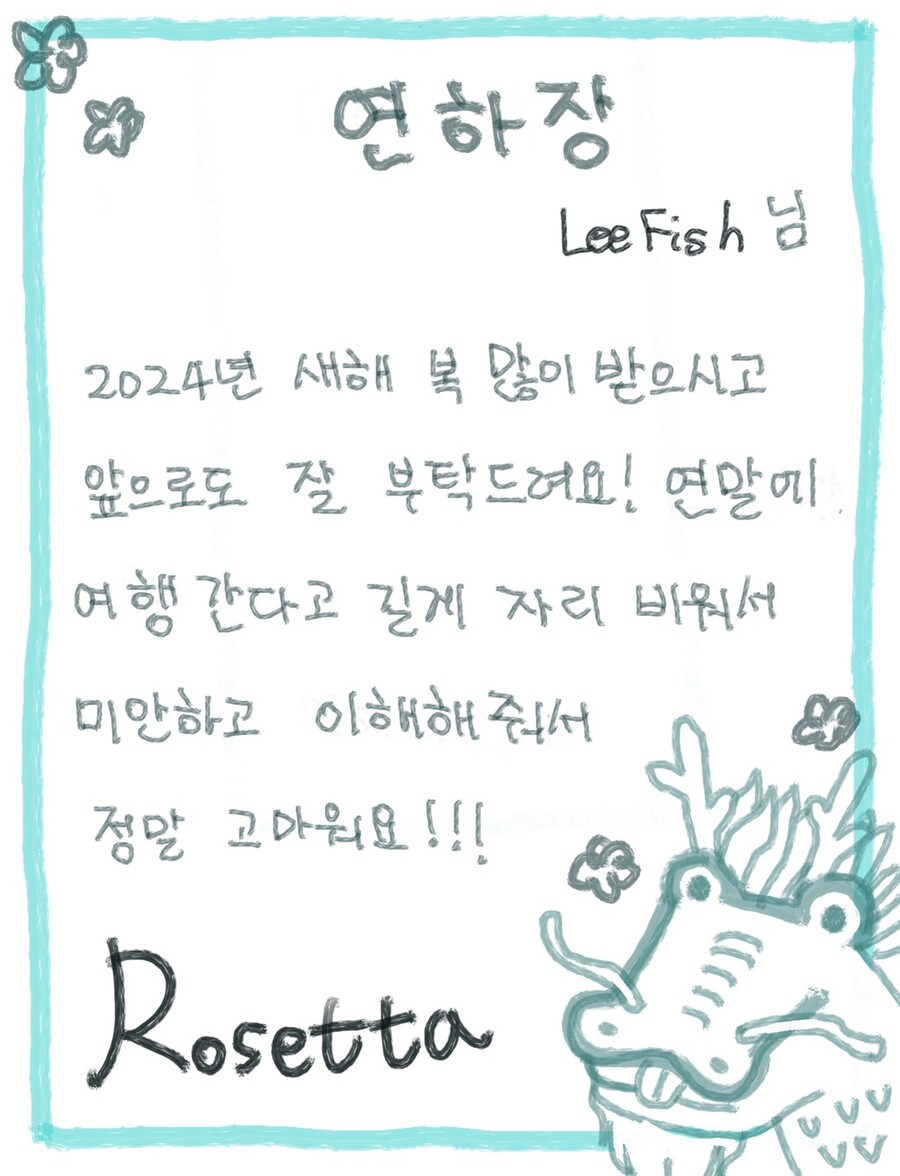 연하장
LeeFish 님
2024년 새해 복 많이 받으시고
앞으로도 잘 부탁드려요! 연말에
여행간다고 길게 자리 비워서
미안하고 이해해줘서
정말 고마워요!!!
Rosetta